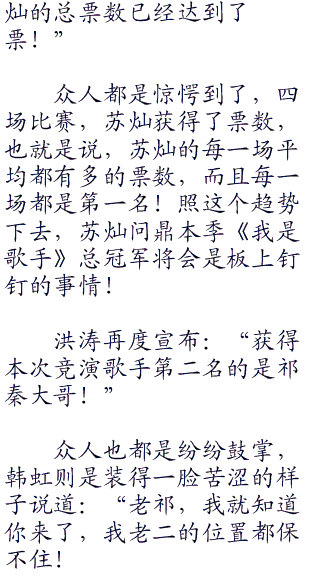 灿的总票数已经达到了
票！”
众人都是惊愕到了，四
场比赛，苏灿获得了票数，
也就是说，苏灿的每一场平
均都有多的票数，而且每一
场都是第一名！照这个趋势
下去，苏灿问鼎本季《我是
歌手》总冠军将会是板上钉
钉的事情！
洪涛再度宣布：“获得
本次竞演歌手第二名的是祁
秦大哥！”
众人也都是纷纷鼓掌，
韩虹则是装得一脸苦涩的样
子说道：“老祁，我就知道
你来了，我老二的位置都保
不住！